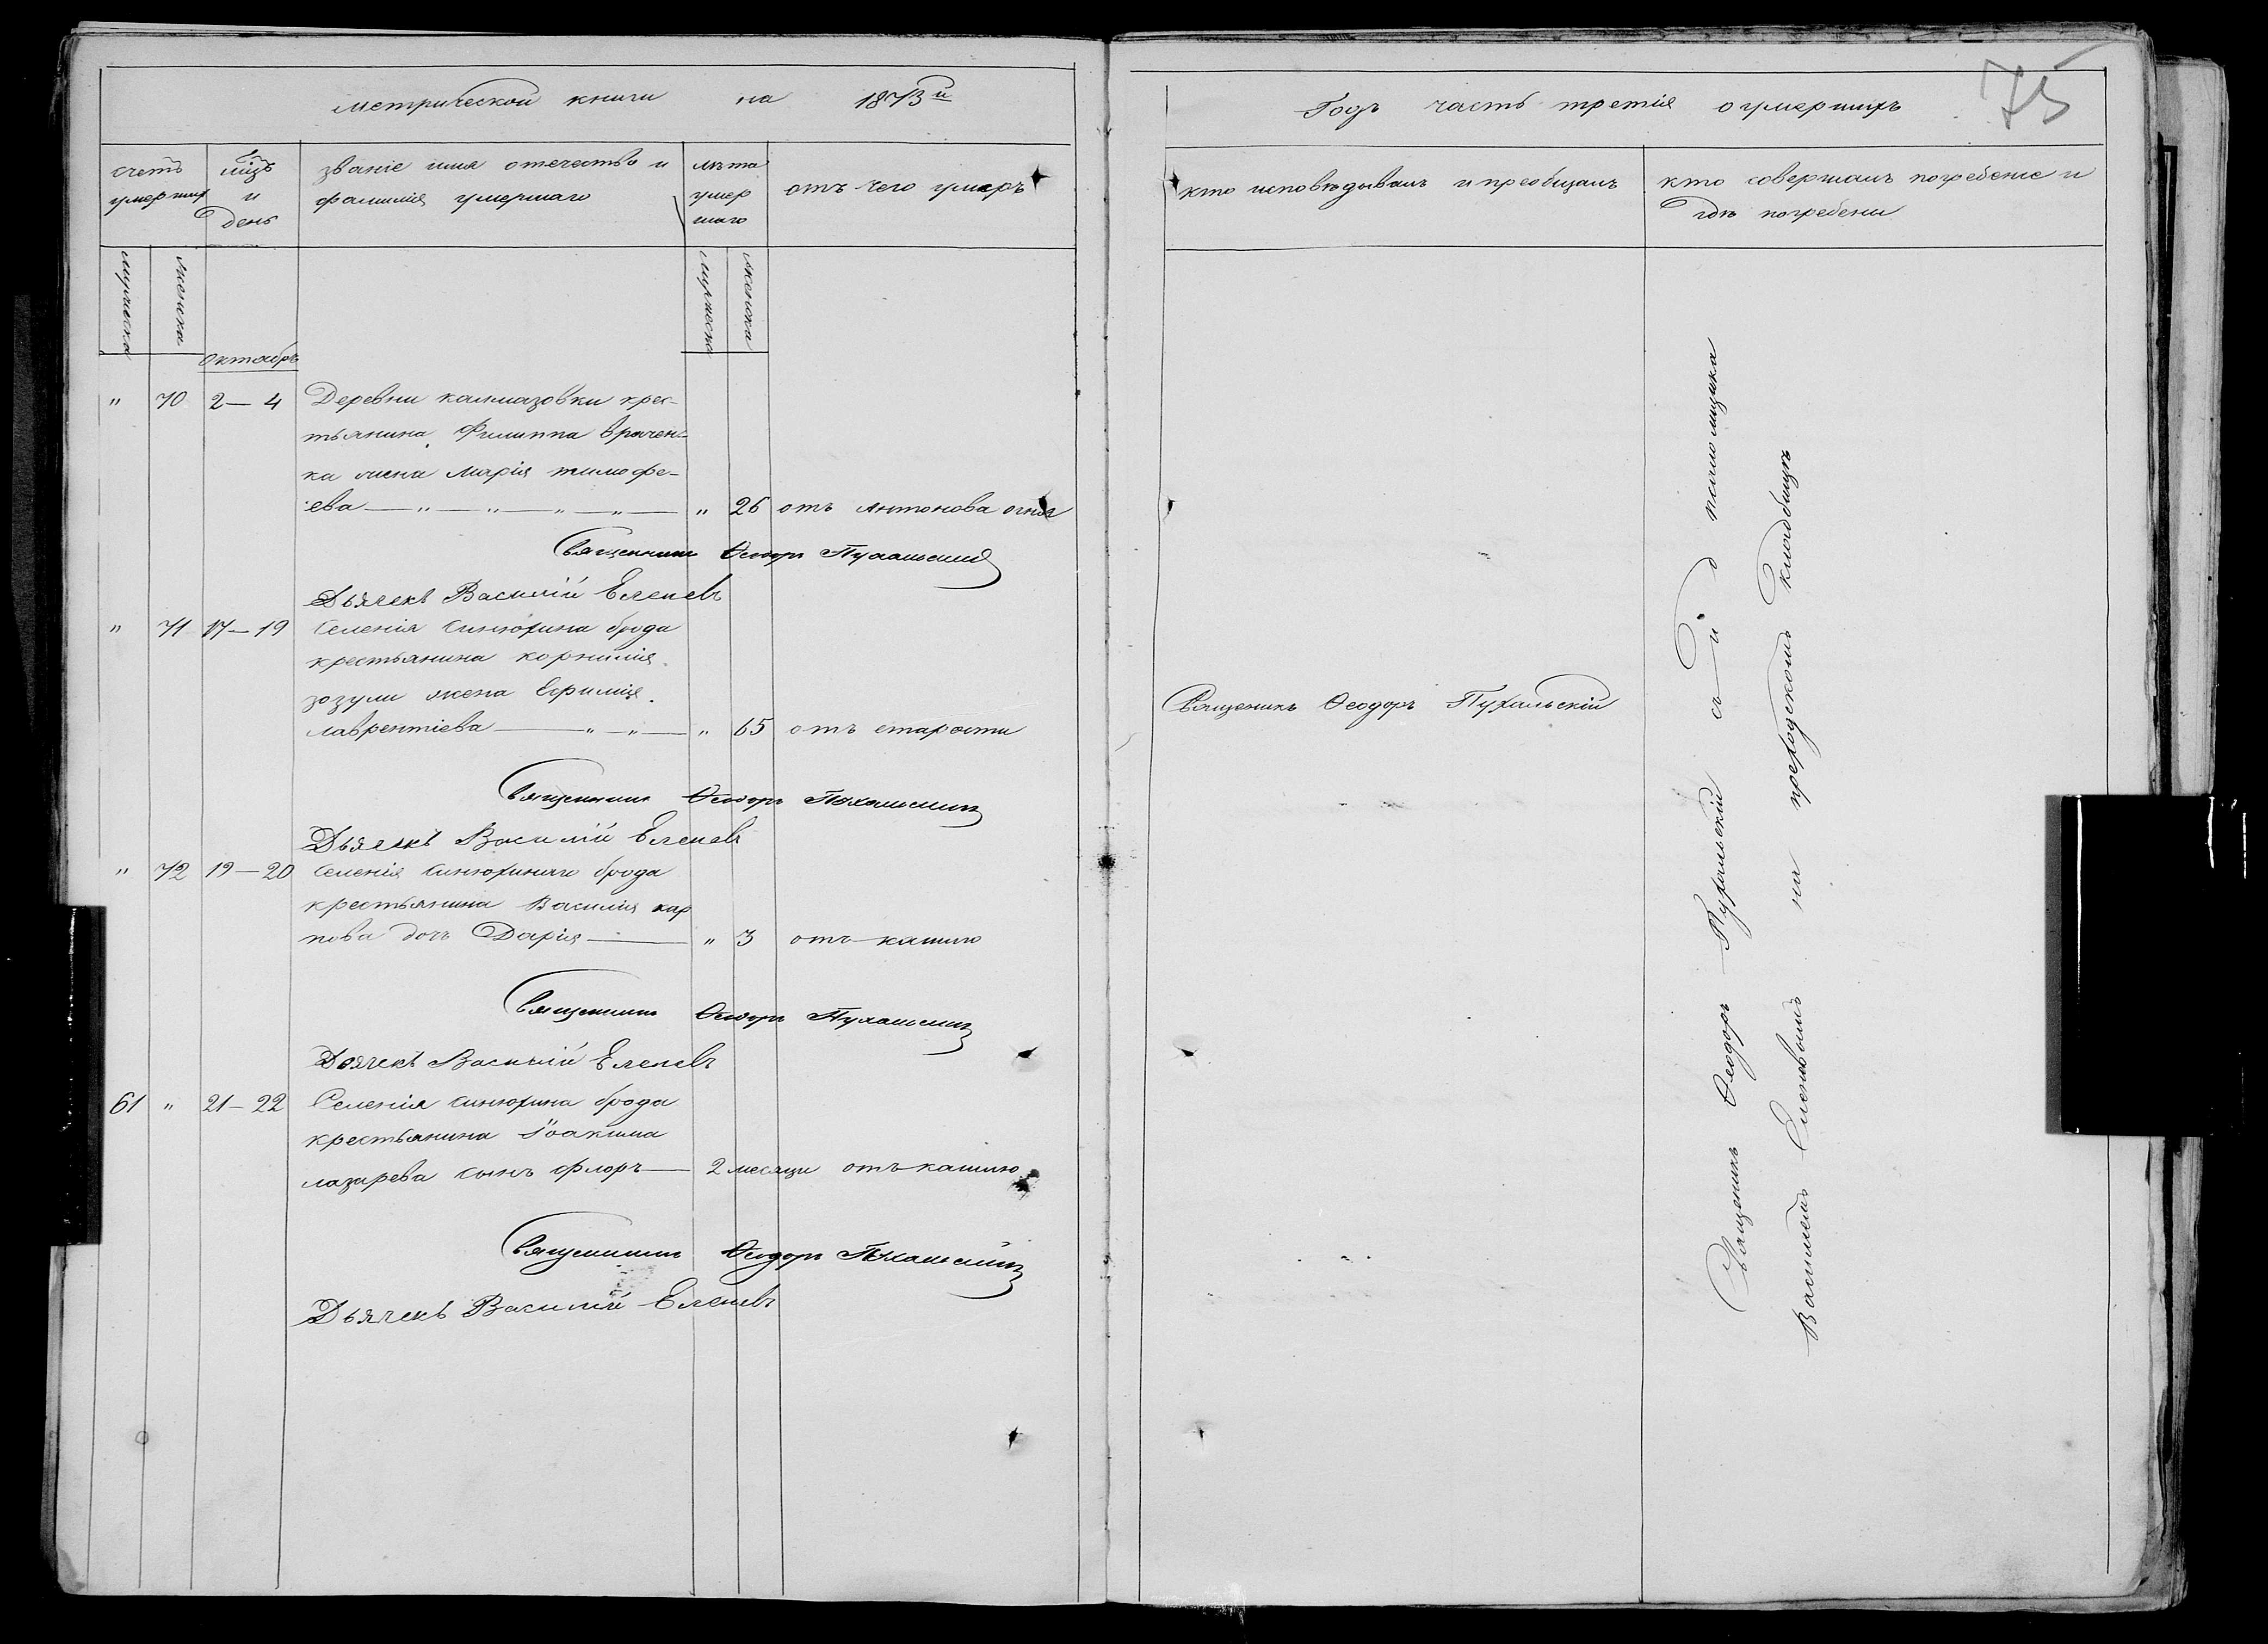 метрической книги на 1873й
Годъ часть третія о умершихъ
75
счетъ умершихъ
мцъ и день
званіе имя отечество и фамилія умершаго
лѣта умершаго
отъ чего умеръ
кто исповѣдывалъ и преобщалъ
кто совершалъ погребеніе и гдѣ погребены
мужеска
женска
мужеска
женска
октябрь
" 70 2–4 Деревни калмазовки крес-
тьянина Филиппа
ка жена Марія тимофе-
ева — " — " — " — " — " 26 отъ Антонова огня
Священникъ Ѳеодоръ Пухальскій
Дьячекъ Василій Еленевъ
" 71 17–19 Селенія синюхина брода
крестьянина корнилія
зозули жена Ефимія
лаврентіева — " — " — " 65 отъ старости
Священикъ Ѳеодоръ Пухальскій
Священникъ Ѳеодоръ Пухальскій
Дьячекъ Василій Еленевъ
" 72 19–20 Селенія синюхинаго брода
крестьянина Василія кар
пова дочь Дарія — " 3 отъ кашлю
Священникъ Ѳеодоръ Пухальскій
Дьячекъ Василій Еленевъ
61 " 21–22 Селенія синюхина брода
крестьянина Іоакима
лазарева сынъ Флоръ — 2 месяци отъ кашлю
Священникъ Ѳеодоръ Пухальскій
Дьячекъ Василій Еленевъ
Священикъ Ѳеодоръ Пухальскій съ и д псаломщика
Василіемъ на преходскомъ кладбищѣ